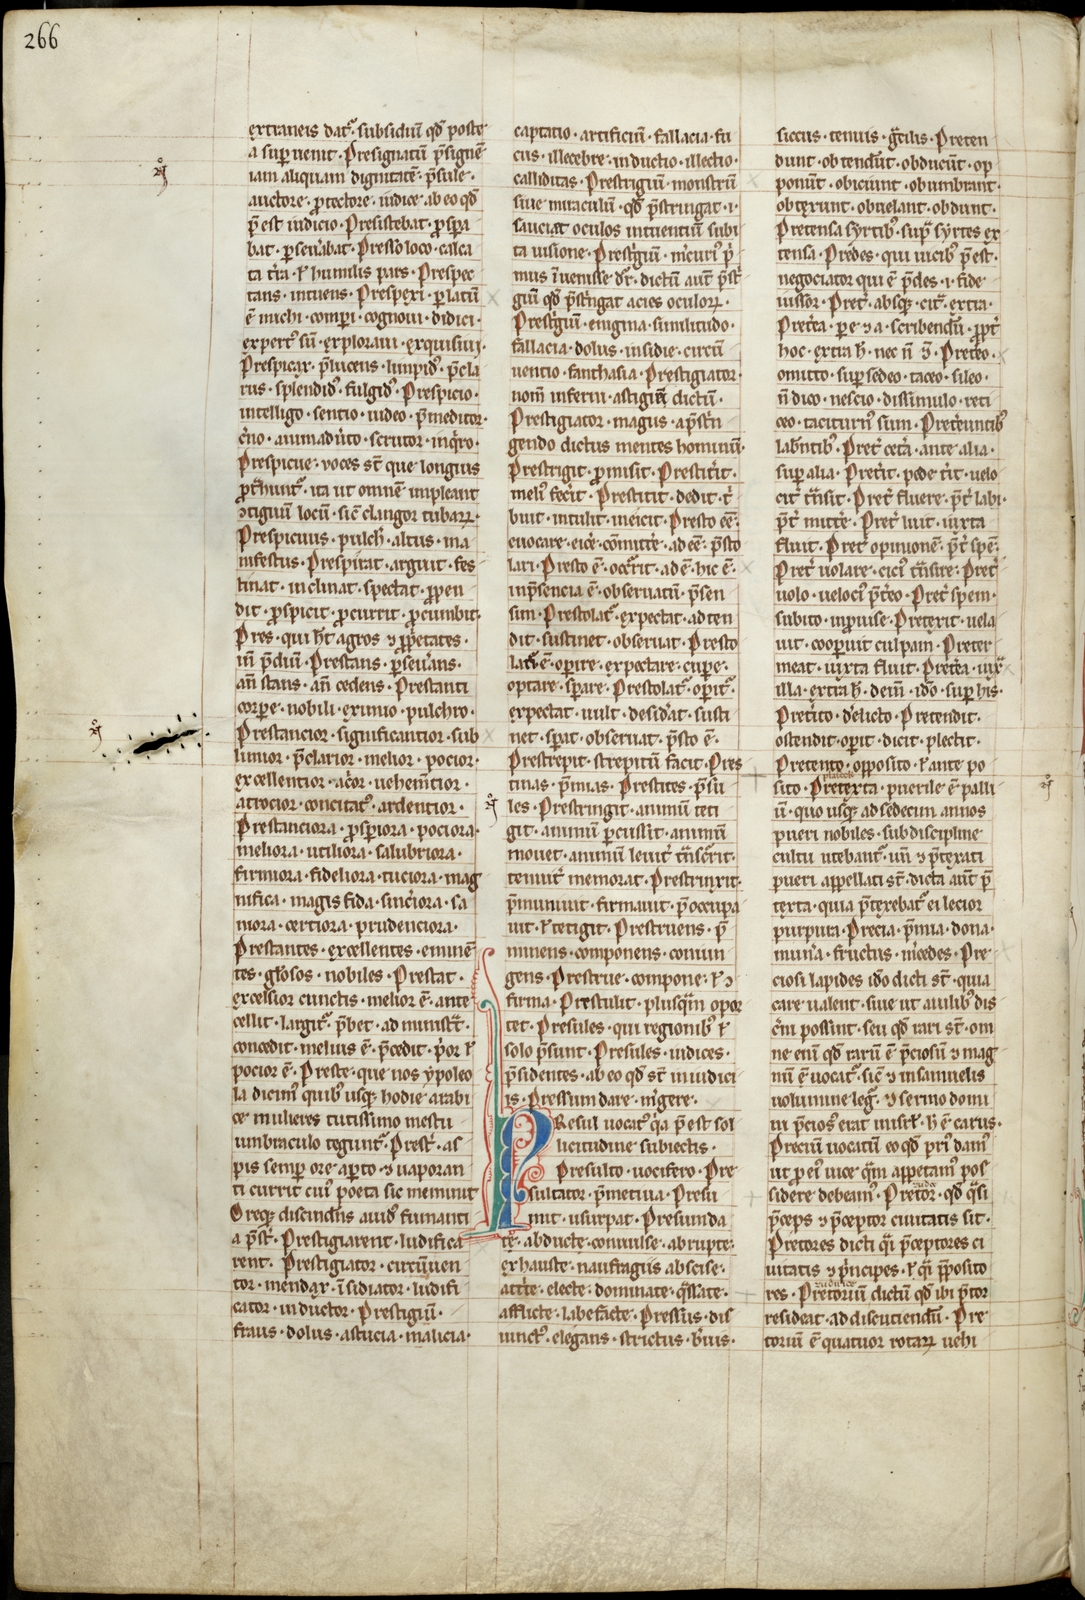 266
extraneis datᷓ· subsidiū qđ poste
a suꝑuenit· Presignatū p̄signē
iam aliquam dignitatē· p̄sule·
auctore· ꝓtectore· iudice ab eo qđ
p̄est iudicio· Presistebat· ꝓspa
bat· ꝑseu̾abat· Presso loco· calca
ta tr̄a· ł humilis pars· Prespec
tans· intuens· Prespexi· ꝑlatū
ē michi· comp̄i· cognoui· didici·
expertꝰ sū· exploraui· exquisiui·
Prespicax· p̄lucens· limpidꝰ· p̄cla
rus· splendidꝰ· fulgidꝰ· Prespicio·
intelligo· sentio· uideo· p̄meditor·
c̾no· animadu̾to· scrutor· inq̇ro·
Prespicue· uoces st̄ que longius
ꝓt̾huntᷓ· ita ut omnē impleant
ɔtiguū locū· sic̄ clangor tubaꝝ·
Prespicuus· pulch̾· altus· ma
nifestus· Prespirat· arguit· fes
tinat· inclinat· spectat· ꝓpen
dit· ꝓspicit· ꝓcurrit· ꝓcumbit·
Pres· qui h̄t agros ⁊ ꝓp̄etates·
iñ p̄diū· Prestans· ꝑseu̾ans·
añ stans· añ cedens· Prestanti
corꝑe· nobili· eximio· pulchro·
Prestancior· significantior· sub
limior· p̄clarior· melior· pocior·
excellentior· ac̾or· uehem̄tior·
atrocior· concitatꝰ· ardentior·
Prestanciora· ꝓsꝑiora· pociora·
meliora· utiliora· salubriora·
firmiora· fideliora· tuciora· mag
nifica· magis fida· sinc̾iora· sa
niora· certiora· prudenciora·
Prestantes· excellentes· eminē
tes· gl̄osos· nobiles· Prestat·
excelsior cunctis· melior ē· ante
cellit· largitᷓ· p̄bet· administᷓt·
concedit· melius ē· p̄cedit· p̾or ł
pocior ē· Preste· que nos ypoleo
la dicimꝰ quibꝰ usqꝫ hodie arabi
ce mulieres tutissimo uestiu
umbraculo tegunt᷑· Prest̾· as
pis semꝑ ore aꝑto ⁊ uaporan
ti currit cuiꝰ poeta sic meminit
Oreqꝫ discindēs auidꝰ fumanti
a p̄st̾· Prestigiarent· ludifica
rent· Prestigiator· circūuen
tor· mendax· īsidiator· ludifi
cator· inductor· Prestigiū·
fraus· dolus· astucia· malicia·
captatio· artificiū· fallacia· fu
cus· illecebre· inductio· illectio·
calliditas· Prestrigiū· monstrū
siue miraculū· qđ p̄stringat· i·
sauciat oculos intuentiū subi
ta uisione· Prest̾giū· m̾curiꝰ p̾
mus īuenisse dr̄· dictū aut̄ p̄st̾
giū qđ p̄st̾ngat acies oculoꝝ·
Prest̾giū· enigma· similitudo·
fallacia· dolus· insidie· circū
uentio· fanthasia· Prestigiator·
nom̄ inferiu· astigiū dictū·
Prestigiator· magus· ap̄st̾n
gendo dictus mentes hominū·
Prestrigit· ꝓmisit· Prestit̾it·
meliꝰ fec̾it· Prestitit· dedit· t̾
buit· intulit· ineicit· Presto eē·
euocare· eic̾e· com̄itt̾e· adeē· p̄sto
lari· Presto ē· occ̾rit· ad ē· hic ē·
inp̄sencia ē· obseruatū· p̄sen
sim· Prestolatᷓ· expectat· adten
dit· sustinet· obseruat· Presto
lat̾ ē· opire· expectare· cuꝑe·
optare· sꝑare· Prestolatᷓ· opitᷓ·
expectat· uult· desid̾at· susti
net· sꝑat· obseruat· p̄sto ē·
Prestrepit· strepitū facit· Pres
tinas· p̄mias· Prestites· p̄su
les· Prestringit· animū teti
git· animū ꝑcussit· animū
mouet· animū leuit̾ tᷓnscr̾it·
tenuit̾ memorat· Prestrinxit·
p̄muniuit· firmauit· p̄occupa
uit· ł tetigit· Prestruens· p̄
muniens· componens· coniun
gens· Prestrue· compone· ł ɔ
firma· Prestulit· plusqᷓm opor
tet· Presules· qui regionibꝰ ł
solo p̄sunt· Presules· iudices·
p̄sidentes· ab eo qđ st̄ in iudici
is· Pressum dare· m̾gere·
Presul uocatᷓ q̾a p̄est sol
licitudine subiectis·
Presulto· uocifero· Pre
sultator· p̄metiua· Presu
mit· usurpat· Presumda
te· abducte· conuulse· abrupte·
exhauste· naufragiis abscise·
att̾te· electe· dominate· q̾ssate·
afflicte· labefacte· Pressiꝰ· dis
iunctꝰ· elegans· strictus· b̾uis·
siccus· tenuis· gᷓcilis· Preten
dunt· obtendūt· obducūt· op
ponūt· obiciunt· obumbrant·
obtexunt· obuelant· obdunt·
Pretensa syrtibꝰ· supᷓ syrtes ex
tensa· Predes· qui uicibꝰ p̄est·
negociator qui ē p̄des· i· fide
iussor· Pret̾· absqꝫ· cit̾· extra·
Pret̾ea· ꝑ e ⁊ a· scribendū· ꝓpt̾
hoc· extra h̄· nec ñ ⁊· Pret̾eo·
omitto· suꝑsedeo· taceo· sileo·
ñ dico· nescio· dissimulo· reti
ceo· taciturnꝰ sum· Pret̾euntibꝰ
lab̄ntibꝰ· Pret̾ cet̾a· ante alia·
suꝑ alia· Pret̾it· pede t̾it· uelo
cit̾ tᷓnsit· Pret̾ fluere· p̄t̾ labi·
p̄t̾ mitt̾e· Pret̾ luit· iuxta
fluit· Pret̾ opinionē· p̄t̾ spē·
Pret̾ uolare· ciciꝰ tᷓnsire· Pret̾
uolo· uelociꝰ p̄t̾eo· Pret̾ spem·
subito· inꝓuise· Pretexit· uela
uit· cooꝑuit culpam· Preter
meat· iuxta fluit· Pret̾ea· iux̾
illa· extra h̄· dein̄· id̄o· suꝑ his·
Pret̾ito· d̾elicto· Pretendit·
ostendit· oꝑit· dicit· plectit·
Pretento· opposito· ł ante po
sito· Pretexta· puerile ē palli
ū· quo usqꝫ ad sedecim annos
pueri nobiles· sub discipline
cultu utebantᷓ· uñ ⁊ p̄texati
pueri appellati st̄· dicta aūt p̄
texta· quia p̄texebatᷓ ei lecior
purpura· Precia· p̄mia· dona·
mun̾a· fructus· m̾cedes· Pre
ciosi lapides id̄o dicti st̄· quia
care ualent· siue ut a uilibꝰ dis
c̾ni possint· seu qđ rari st̄· om
ne enī qđ rarū ē p̄ciosū ⁊ mag
nū ē uocatᷓ· sic̄ ⁊ in samuelis
uolumine legᷓ· ⁊ sermo domi
ni p̄ciosꝰ erat in isrł· h̄ ē carus·
Preciū uocatū eo qđ priꝰ damꝰ
ut ꝓ eiꝰ uice q̄m appetamꝰ pos
sidere debeamꝰ· Pretor· qđ q̾si
p̄ceps ⁊ p̄ceptor ciuitatis sit·
Pretores dicti q̾i p̄ceptores ci
uitatis ⁊ p̾ncipes· ł q̾i p̄posito
res· Pretoriū dictū qđ ibi p̄tor
resideat· ad discutiendū· Pre
toriū ē quatuor rotaꝝ uehi